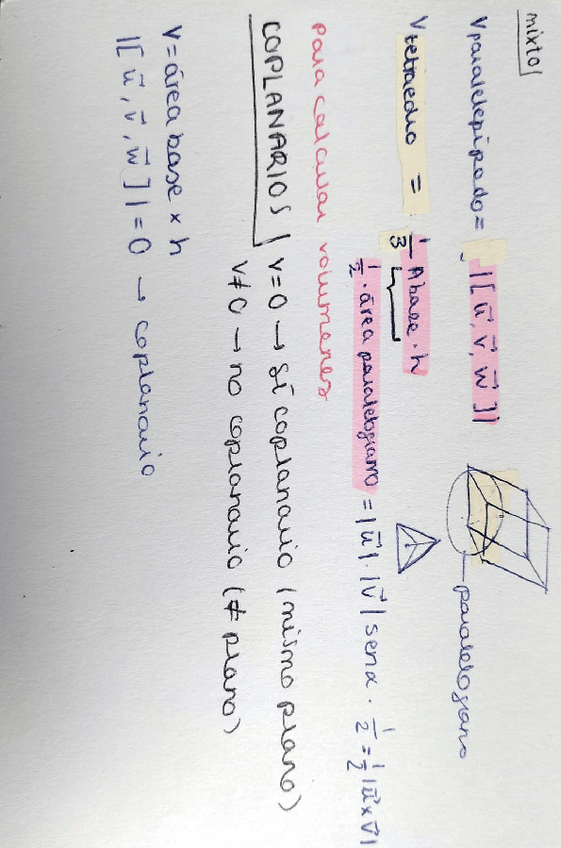 mixto
Vparalelepípedo = |[ū, v̄, w̄]|
paralelogramo
Vtetraedro = 1/3 Abase · h
1/2 · área paralelogramo = |ū| · |v̄| senα · 1/2 = 1/2 |ū x v̄|
para calcular volumenes
COPLANARIOS | v=0 → Sí coplanario (mismo plano)
v≠0 → no coplanario (≠ plano)
v = área base x h
|[ū, v̄, w̄]| = 0 → coplanario